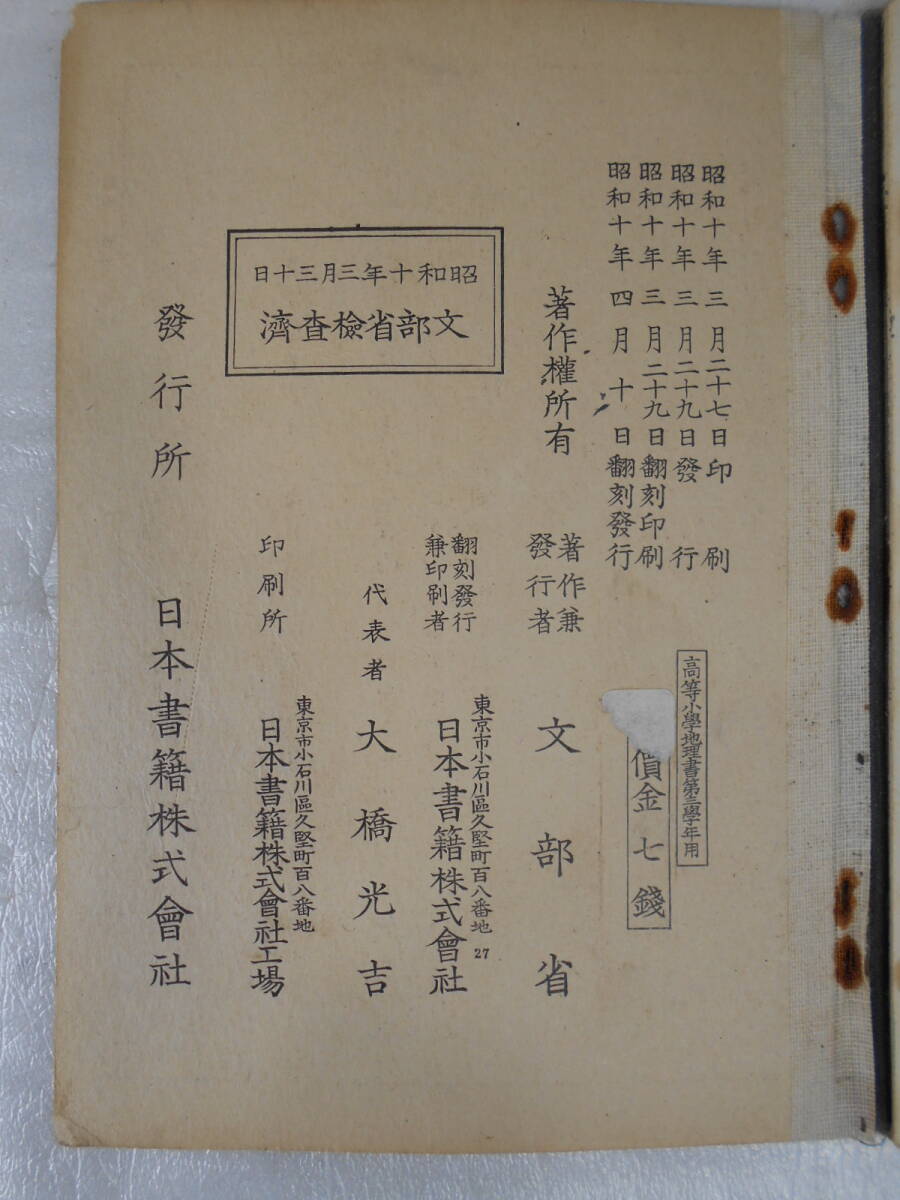 昭和十年三月二十七日印刷
昭和十年三月二十九日發行
昭和十年三月二十九日翻刻印刷
昭和十年四月十日翻刻發行
高等小學地理書第三學年用
價金七錢
著作權所有
著作兼
發行者
文部省
翻刻發行
兼印刷者
東京市小石川區久堅町百八番地
27
日本書籍株式會社
代表者 大橋光吉
昭和十年三月三十日
文部省檢査濟
印刷所
東京市小石川區久堅町百八番地
日本書籍株式會社工場
發行所 日本書籍株式會社